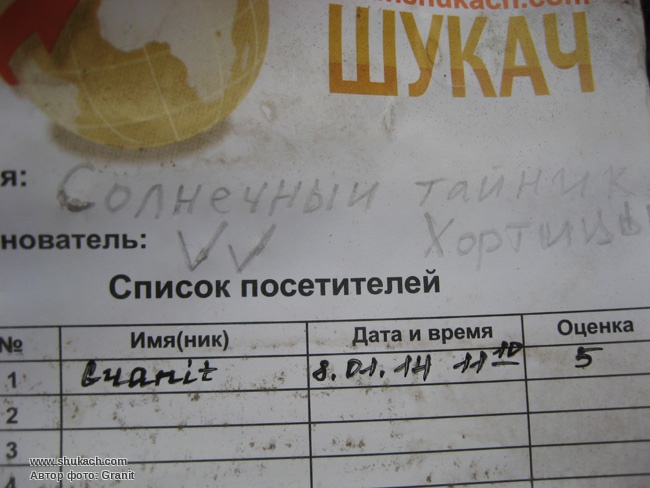 shukach.com
ШУКАЧ
я: Солнечный тайник
нователь: VV Хортицы
Список посетителей
№ Имя(ник) Дата и время Оценка
1 Granit 8.01.14 11 10 5
2
3
4
www.shukach.com
Автор фото: Granit